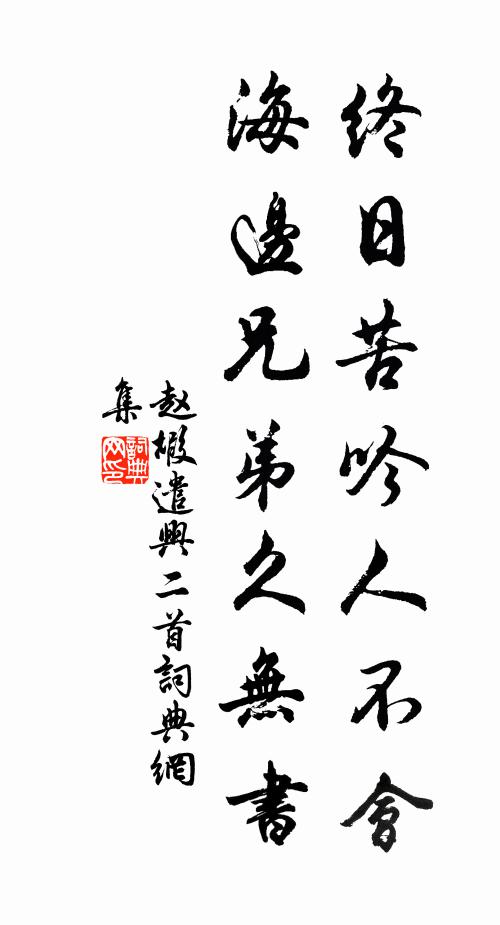 終日苦吟人不會
海邊兄弟久無書
赵嘏遣興二首詞典網
集
詞典網印